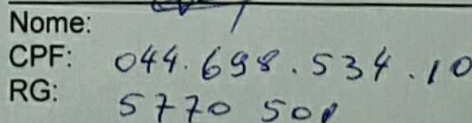 Nome:
CPF: 044.698.534.10
RG: 5770 501